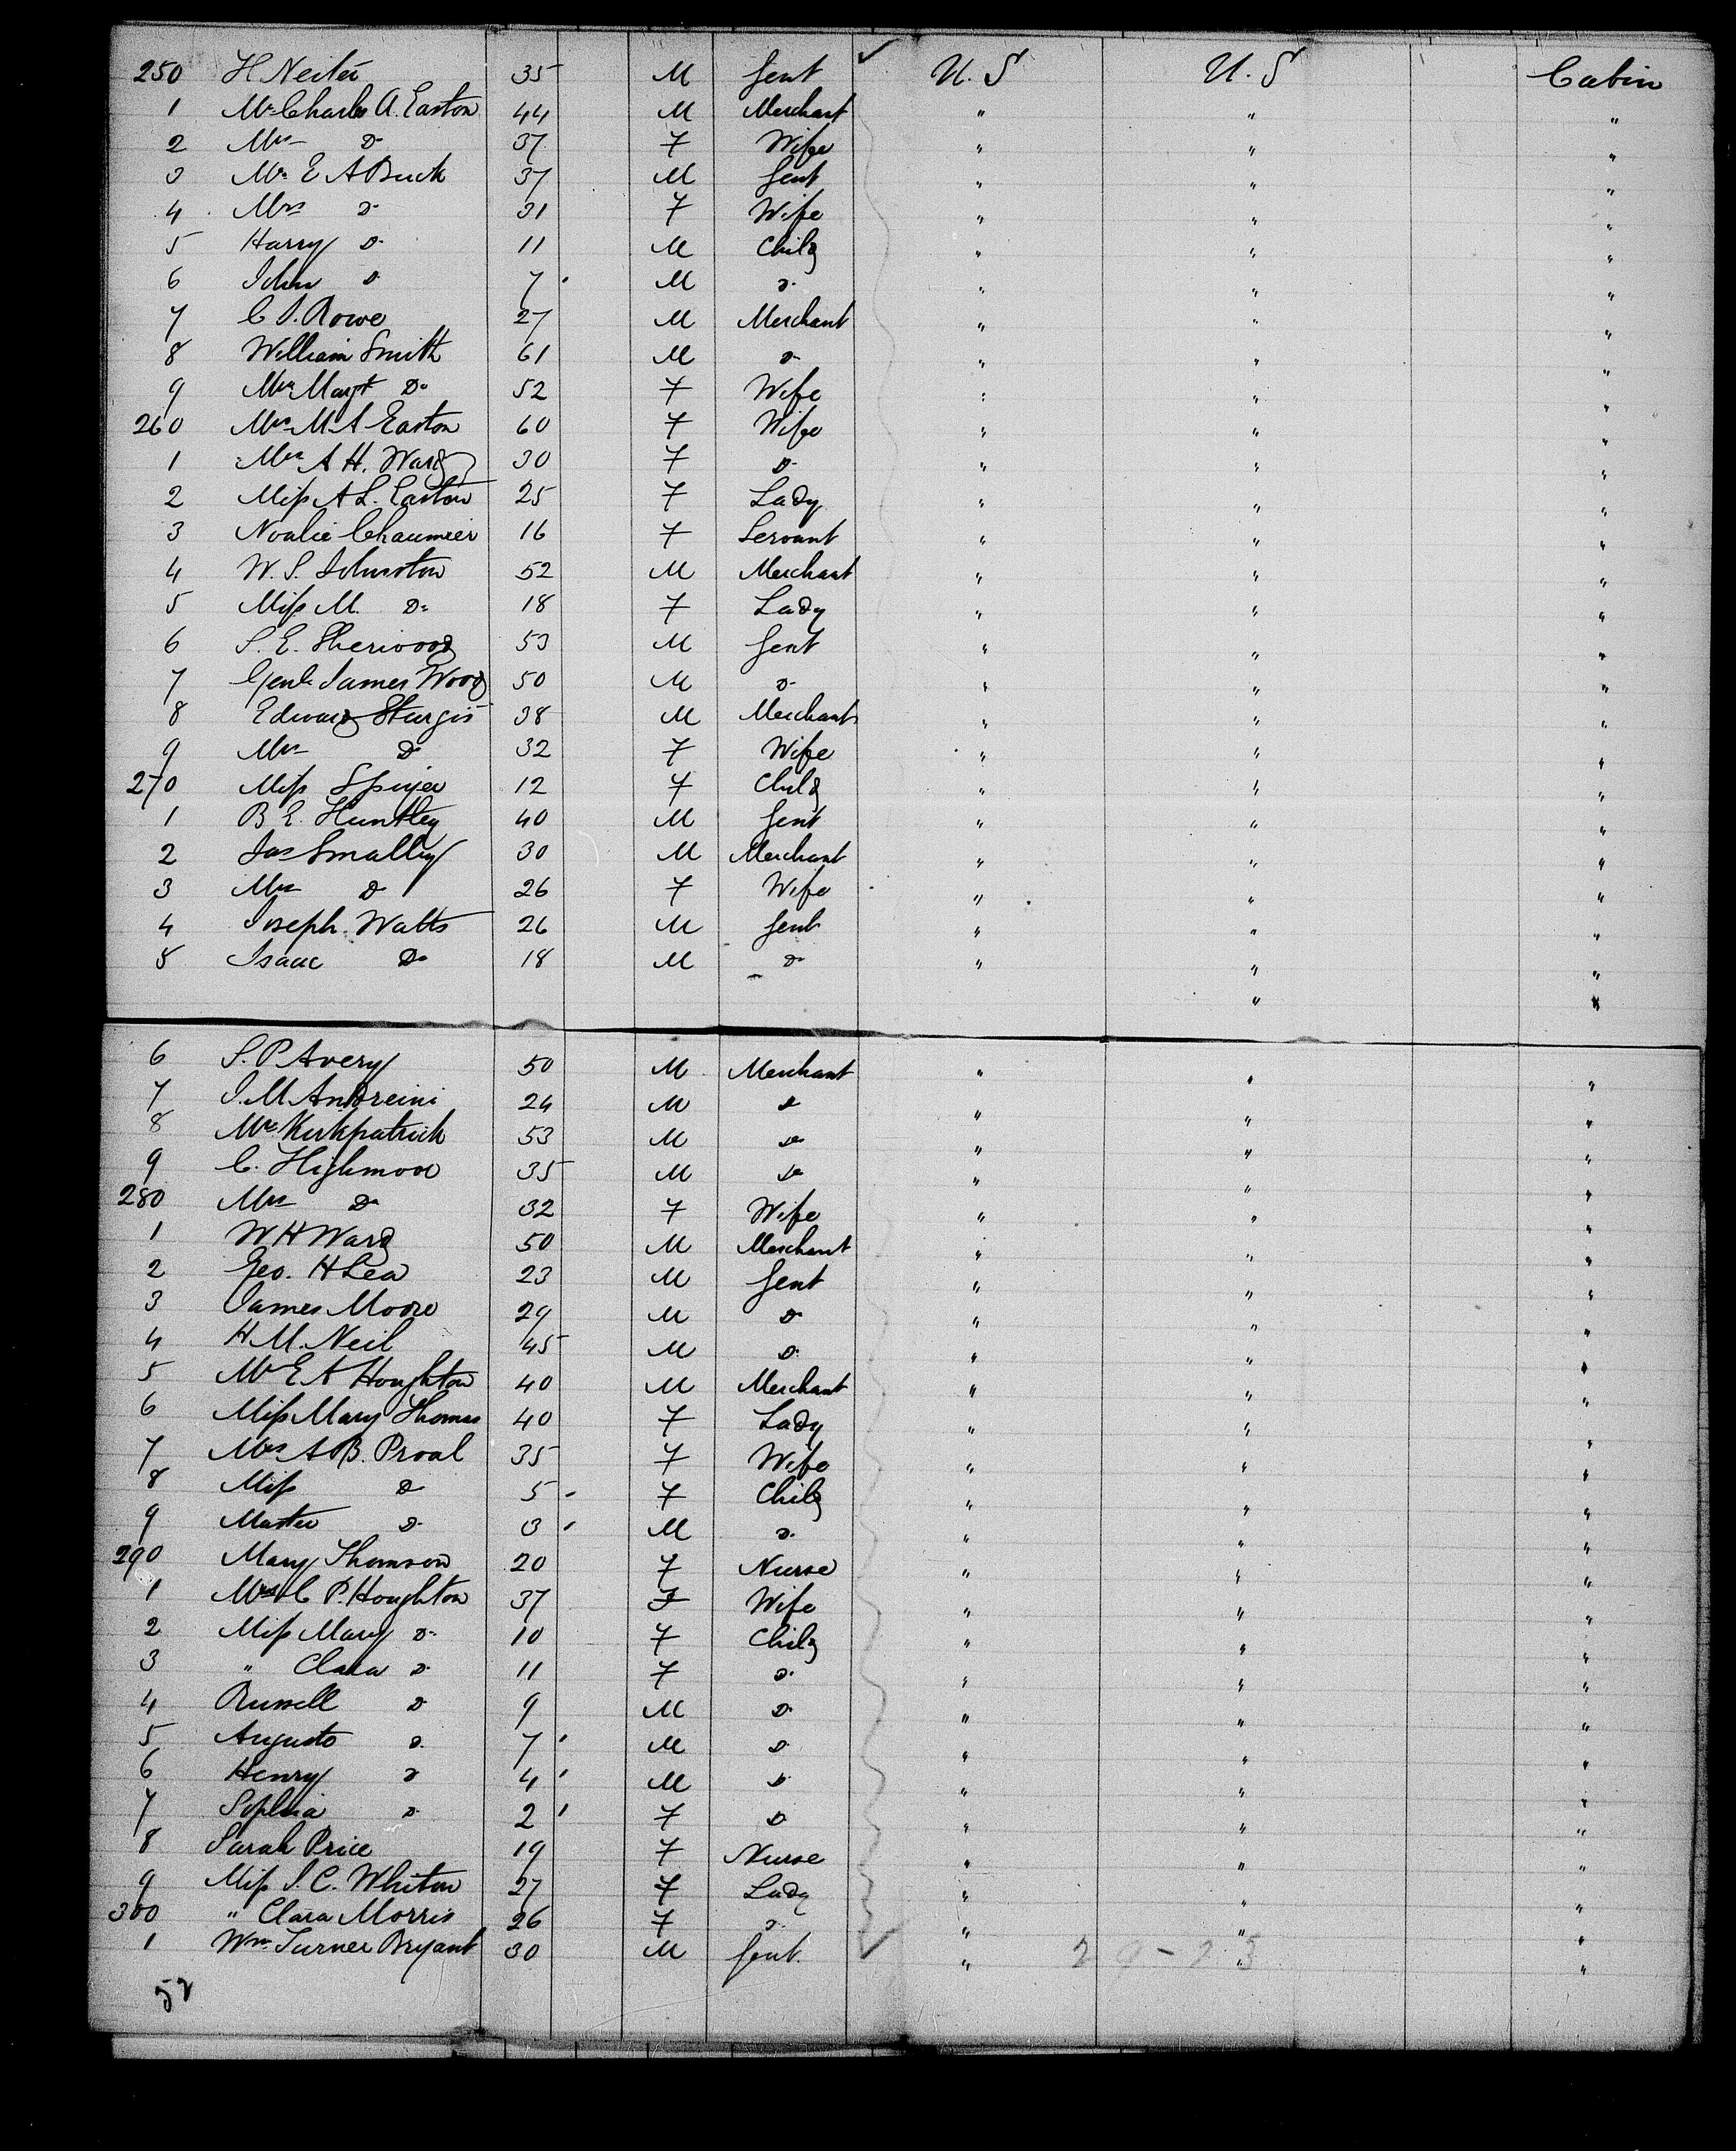 250 H Neiler 35 M Gent U.S U.S Cabin
1 Mr Charles A. Easton 44 M Merchant " " "
2 Mrs Do 37 F Wife " " "
3 Mr E A Buck 37 M Gent " " "
4 Mrs Do 31 F Wife " " "
5 Harry Do 11 M Child " " "
6 John Do 7 M Do " " "
7 C J. Rowe 27 M Merchant " " "
8 William Smith 61 M Do " " "
9 Mrs Margt Do 52 F Wife " " "
260 Mrs M A Easton 60 F Wife " " "
1 Mrs A H. Ward 30 F Do " " "
2 Miss A L. Easton 25 F Lady " " "
3 Noalie Chaumier 16 F Servant " " "
4 W. S. Johnston 52 M Merchant " " "
5 Miss M. Do 18 F Lady " " "
6 S. E. Sherwood 53 M Gent " " "
7 Genl James Wood 50 M Do " " "
8 Edward Sturgis 38 M Merchant " " "
9 Mrs Do 32 F Wife " " "
270 Miss 12 F Child " " "
1 B E. Huntley 40 M Gent " " "
2 Jas Smalley 30 M Merchant " " "
3 Mrs Do 26 F Wife " " "
4 Joseph Watts 26 M Gent " " "
5 Isaac Do 18 M Do " " "
" "
6 S. P Avery 50 M Merchant " " "
7 J. M Andreini 24 M Do " " "
8 Mr Kirkpatrick 53 M Do " " "
9 C. Highmore 35 M Do " " "
280 Mrs Do 32 F Wife " " "
1 W H Ward 50 M Merchant " " "
2 Geo. H Lea 23 M Gent " " "
3 James Moore 29 M Do " " "
4 H. M. Neil 45 M Do " " "
5 Mr E A Houghton 40 M Merchant " " "
6 Miss Mary Thomas 40 F Lady " " "
7 Mrs A B. Proal 35 F Wife " " "
8 Miss Do 5 F Child " " "
9 Master Do 3 M Do " " "
290 Mary Thomson 20 F Nurse " " "
1 Mrs C P. Houghton 37 F Wife " " "
2 Miss Mary Do 10 F Child " " "
3 " Clara Do 11 F Do " " "
4 Russell Do 9 M Do " " "
5 Augusto Do 7 M Do " " "
6 Henry Do 4 M Do " " "
7 Sophia Do 2 F Do " " "
8 Sarah Price 19 F Nurse " " "
9 Miss J. C. Whiton 27 F Lady " " "
300 " Clara Morris 26 F Do " " "
1 Wm Turner Bryant 30 M Gent. " " "
52